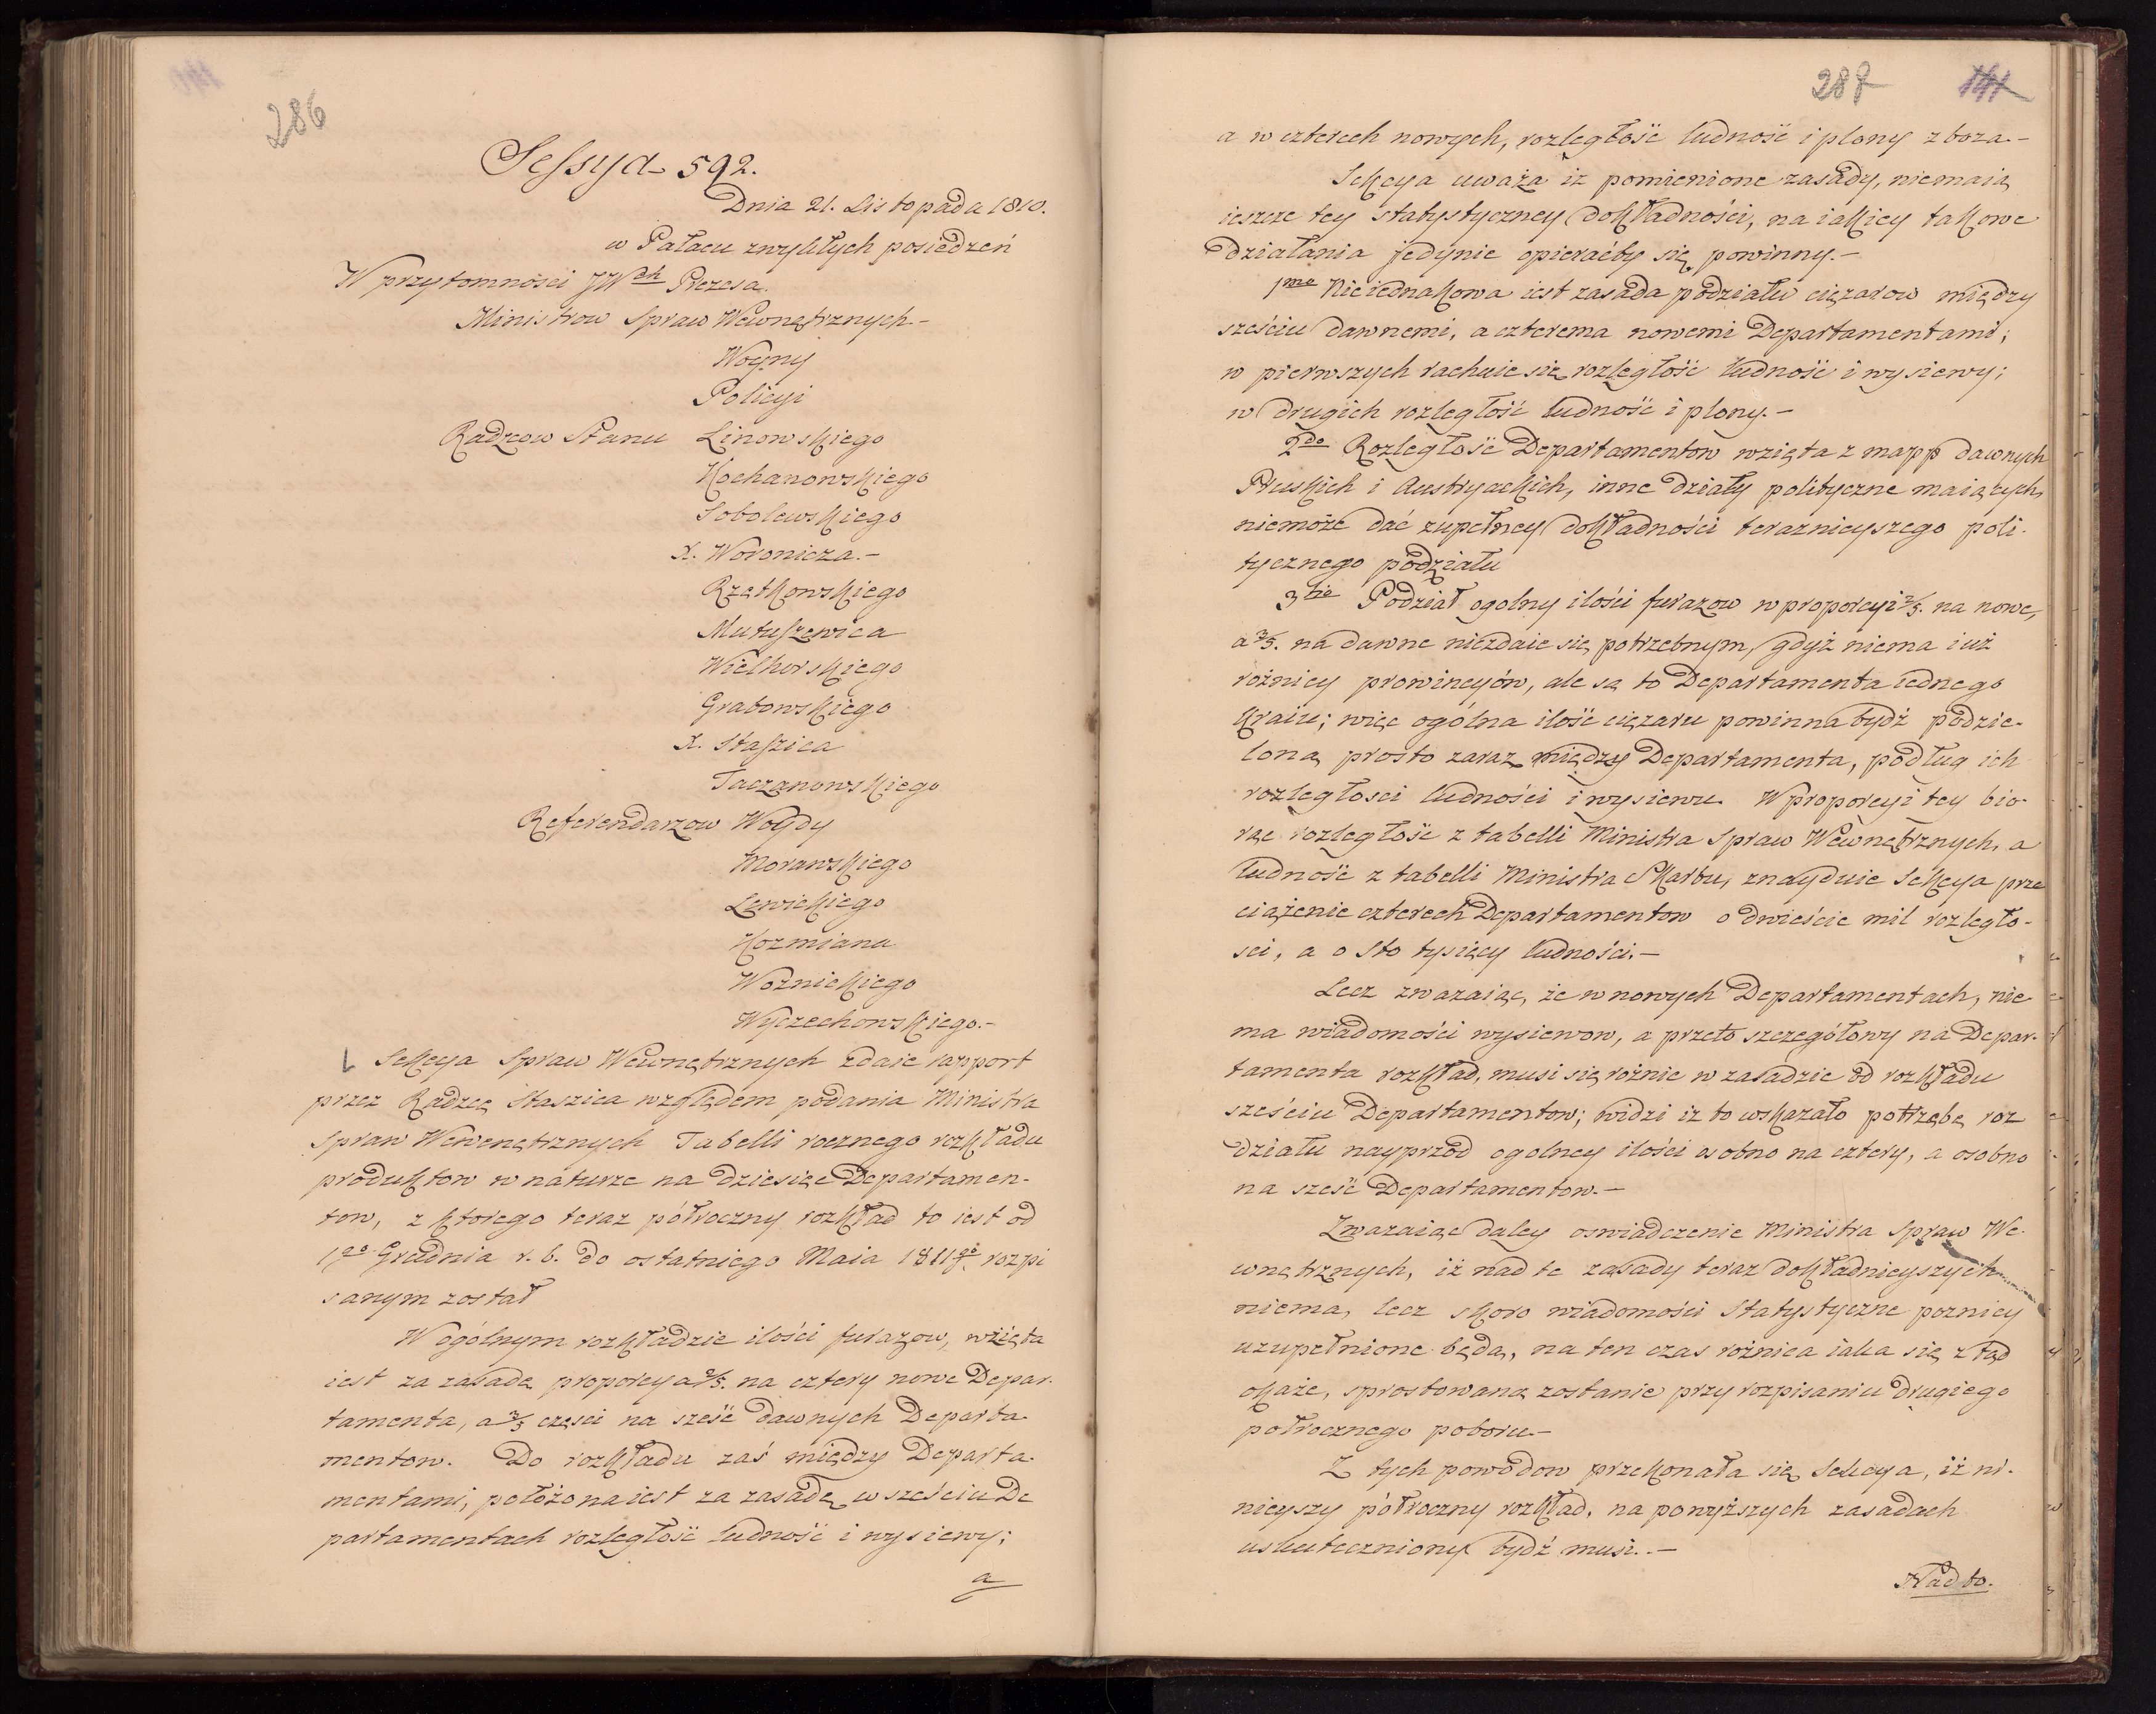 286
Sessya 592.
Dnia 21. Listopada 1810.
w Pałacu zwykłych posiedzeń
W przytomności JWch Prezesa.
Ministrow Spraw Wewnętrznych.-
Woyny
Policyi
Radzcow Stanu Linowskiego
Kochanowskiego
Sobolewskiego
X. Woronicza.-
Rzętkowskiego
Matuszewica
Wielhorskiego
Grabowskiego
X. Staszica
Taczanowskiego
Referendarzow Woydy
Morawskiego
Lewickiego
Kozmiana
Woznickiego
Wyczechowskiego.-
Sekcya Spraw Wewnętrznych zdaie rapport
przez Radzcę Staszica względem podania Ministra
Spraw Wewenętrznych Tabelli rocznego rozkładu
produktow w naturze na dziesięc Departamen-
tow, z ktorego teraz półroczny rozkład to iest od
1go Grudnia r. b. do ostatniego Maia 1811go r. rozpi
sanym został
W ogólnym rozkładzie ilości furazow, wzięta
iest za zasadę proporcya 2/5. na cztery nowe Depar-
tamenta, a 3/5 częsci na sześć dawnych Departa-
mentow. Do rozkładu zaś między Departa-
mentami, położona iest za zasadę w sześciu De
partamentach rozległość ludność i wysiewy;
a
287 141
a w czterech nowych, rozległość ludność i plony zboza.-
Sekcya uważa iz pomienione zasady, niemaią
ieszcze tey statystyczney dokładności, na iakiey takowe
działania jedynie opieraćby się powinny.-
1mo Nieiednakowa iest zasada podziału cięzarow między
sześciu dawnemi, a czterema nowemi Departamentami;
w pierwszych rachuie się rozległość ludność i wysiewy;
w drugich rozległość ludność i plony.-
2do Rozległość Departamentow wzięta z mapp dawnych
Pruskich i Austryackich, inne działy polityczne maiących,
niemoże dać zupełney dokładności teraznieyszego poli-
tycznego podziału
3tio Podział ogolny ilości furazow w proporcyi 2/5. na nowe,
a 3/5. na dawne niezdaie się potrzebnym, gdyż niema iuż
rożnicy prowincyów, ale są to Departamenta iednego
Kraiu; więc ogólna ilość cięzaru powinna bydź podzie-
loną prosto zaraz między Departamenta, podług ich
rozległosci ludności i wysiewu. W proporcyi tey bio-
rąc rozległość z tabelli Ministra Spraw Wewnętrznych, a
ludność z tabelli Ministra Skarbu, znayduie Sekcya prze
ciążenie czterech Departamentow o dwieście mil rozległo-
sci, a o sto tysięcy ludności.-
Lecz zwazaiąc, że w nowych Departamentach, nie-
ma wiadomości wysiewow, a przeto szczegółowy na Depar-
tamenta rozkład, musi się rożnic w zasadzie od rozkładu
sześciu Departamentow; widzi iz to wskazało potrzebę roz
działu nayprzod ogolney ilości osobno na cztery, a osobno
na sześć Departamentow.-
Zwazaiąc daley oswiadczenie Ministra Spraw We-
wnętrznych, iż nad te zasady teraz dokładnieyszych
niema, lecz skoro wiadomości Statystyczne pozniey
uzupełnione będą, na ten czas rożnica iaka się ztąd
okaże, sprostowaną zostanie przy rozpisaniu drugiego
połrocznego poboru.-
Z tych powodow przekonała się Sekcya, iż ni-
nieyszy półroczny rozkład, na powyższych zasadach
uskuteczniony bydź musi..-
Nadto.